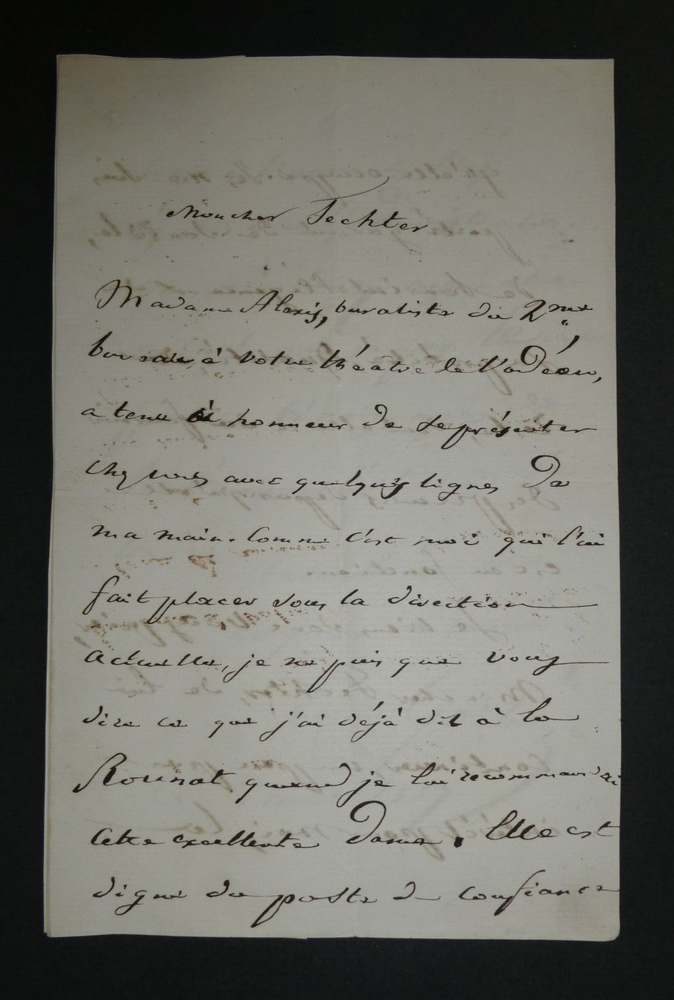 Mon cher Fechter
Madame Alexis, buraliste du 2me
bureau à votre théâtre de l'odéon,
a tenu à honneur de se présenter
chez vous avec quelques lignes de
ma main. Comme c'est moi qui l'ai
fait placer sous la direction
actuelle, je ne puis que vous
dire ce que j'ai déjà dit à la
Rounat quand je lui recommandai
cette excellente dame. Elle est
digne du poste de confiance